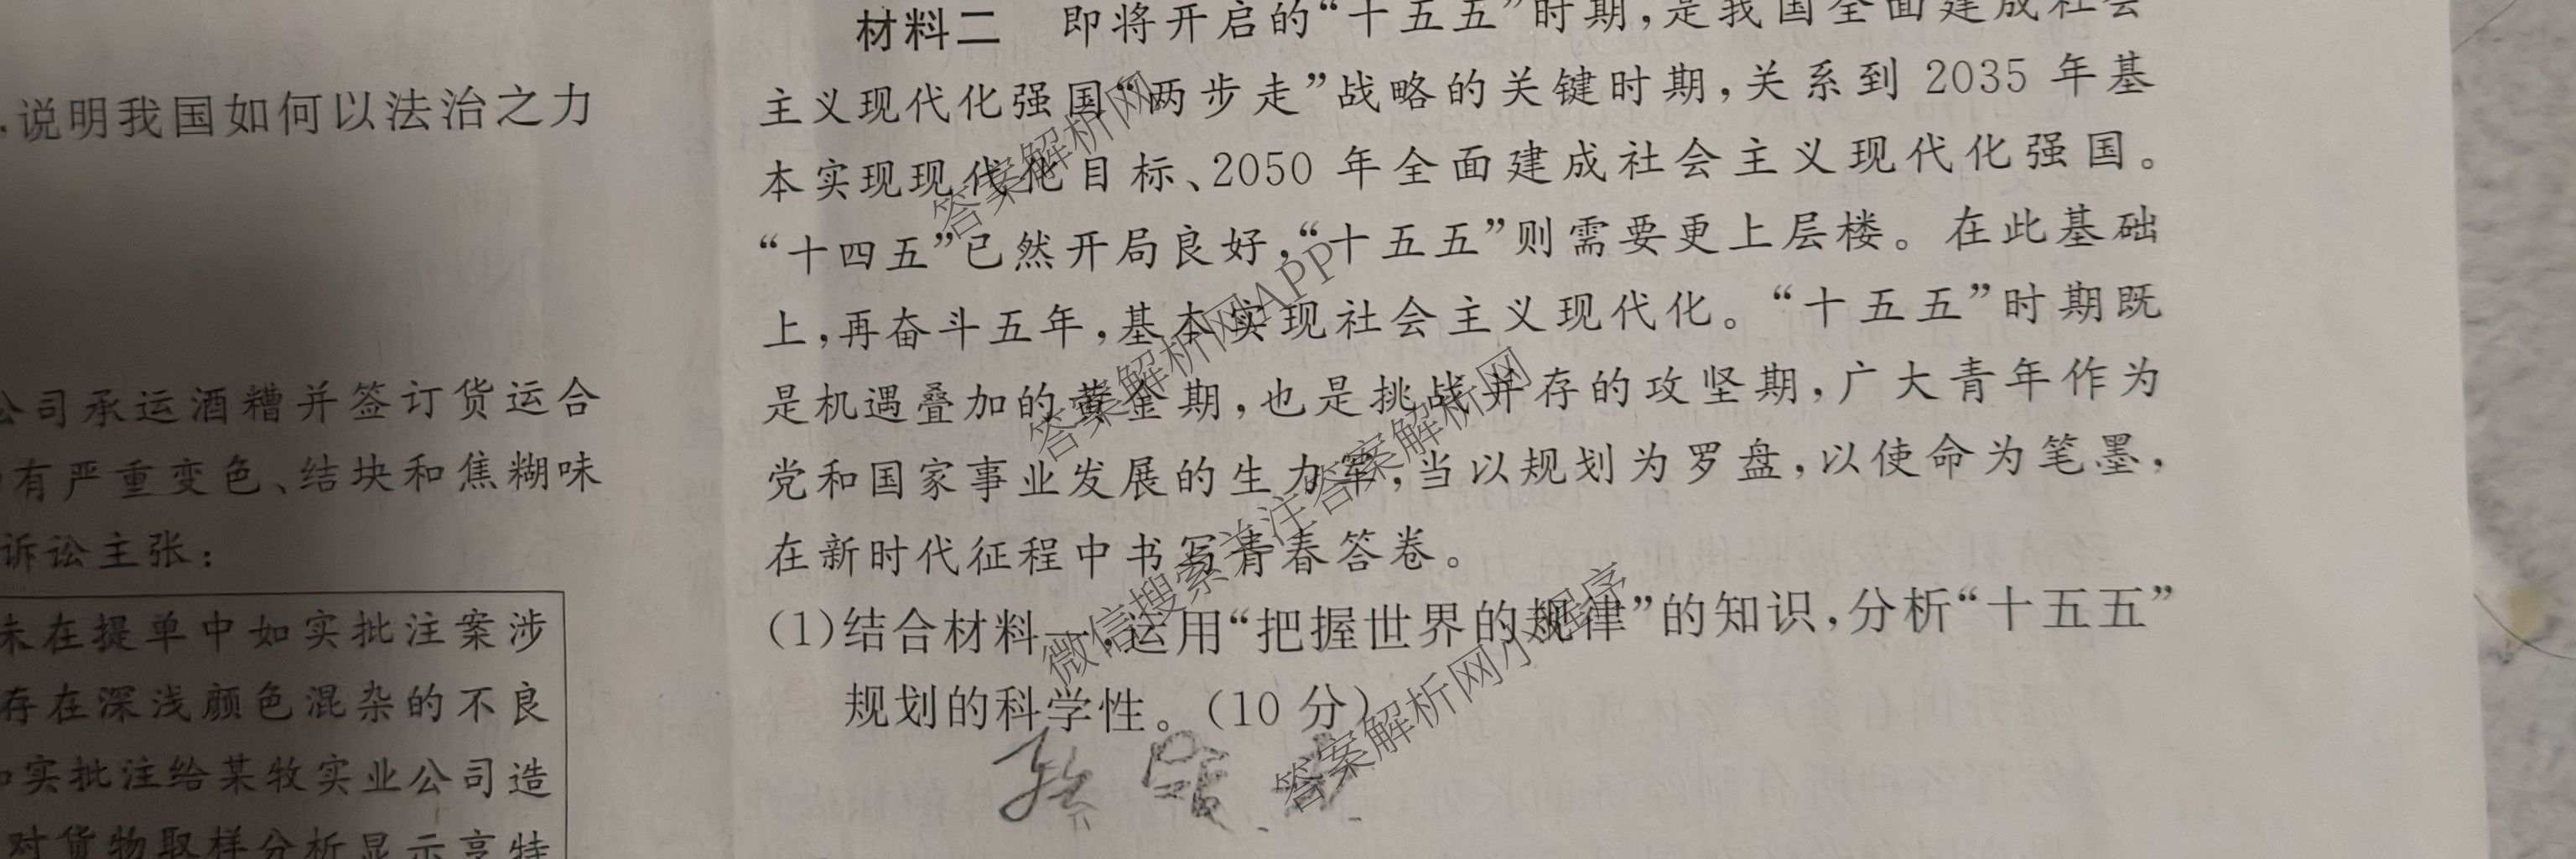 .说明我国如何以法治之力
公司承运酒糟并签订货运合
有严重变色、结块和焦糊味
诉讼主张:
未在提单中如实批注案涉
存在深浅颜色混杂的不良
实批注给某牧实业公司造
对货物取样分析显示亨特
材料二 即将开启的“十五五”时期,是我国全面建成社会
主义现代化强国“两步走”战略的关键时期,关系到 2035 年基
本实现现代化目标、2050 年全面建成社会主义现代化强国。
“十四五”已然开局良好,“十五五”则需要更上层楼。在此基础
上,再奋斗五年,基本实现社会主义现代化。“十五五”时期既
是机遇叠加的黄金期,也是挑战并存的攻坚期,广大青年作为
党和国家事业发展的生力军,当以规划为罗盘,以使命为笔墨,
在新时代征程中书写青春答卷。
(1)结合材料一,运用“把握世界的规律”的知识,分析“十五五”
规划的科学性。(10 分)
答案解析网
答案解析网APP
微信搜索关注答案解析网
答案解析网小程序